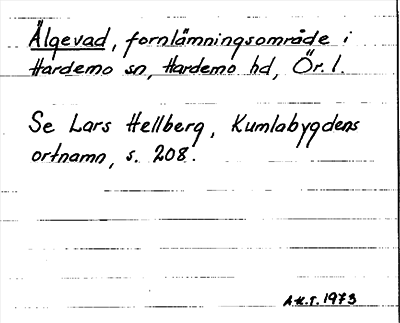 Älgevad, fornlämningsområde i
Hardemo sn, Hardemo hd, Ör. l.
Se Lars Hellberg, Kumlabygdens
ortnamn, s. 208.
A.K.T. 1973